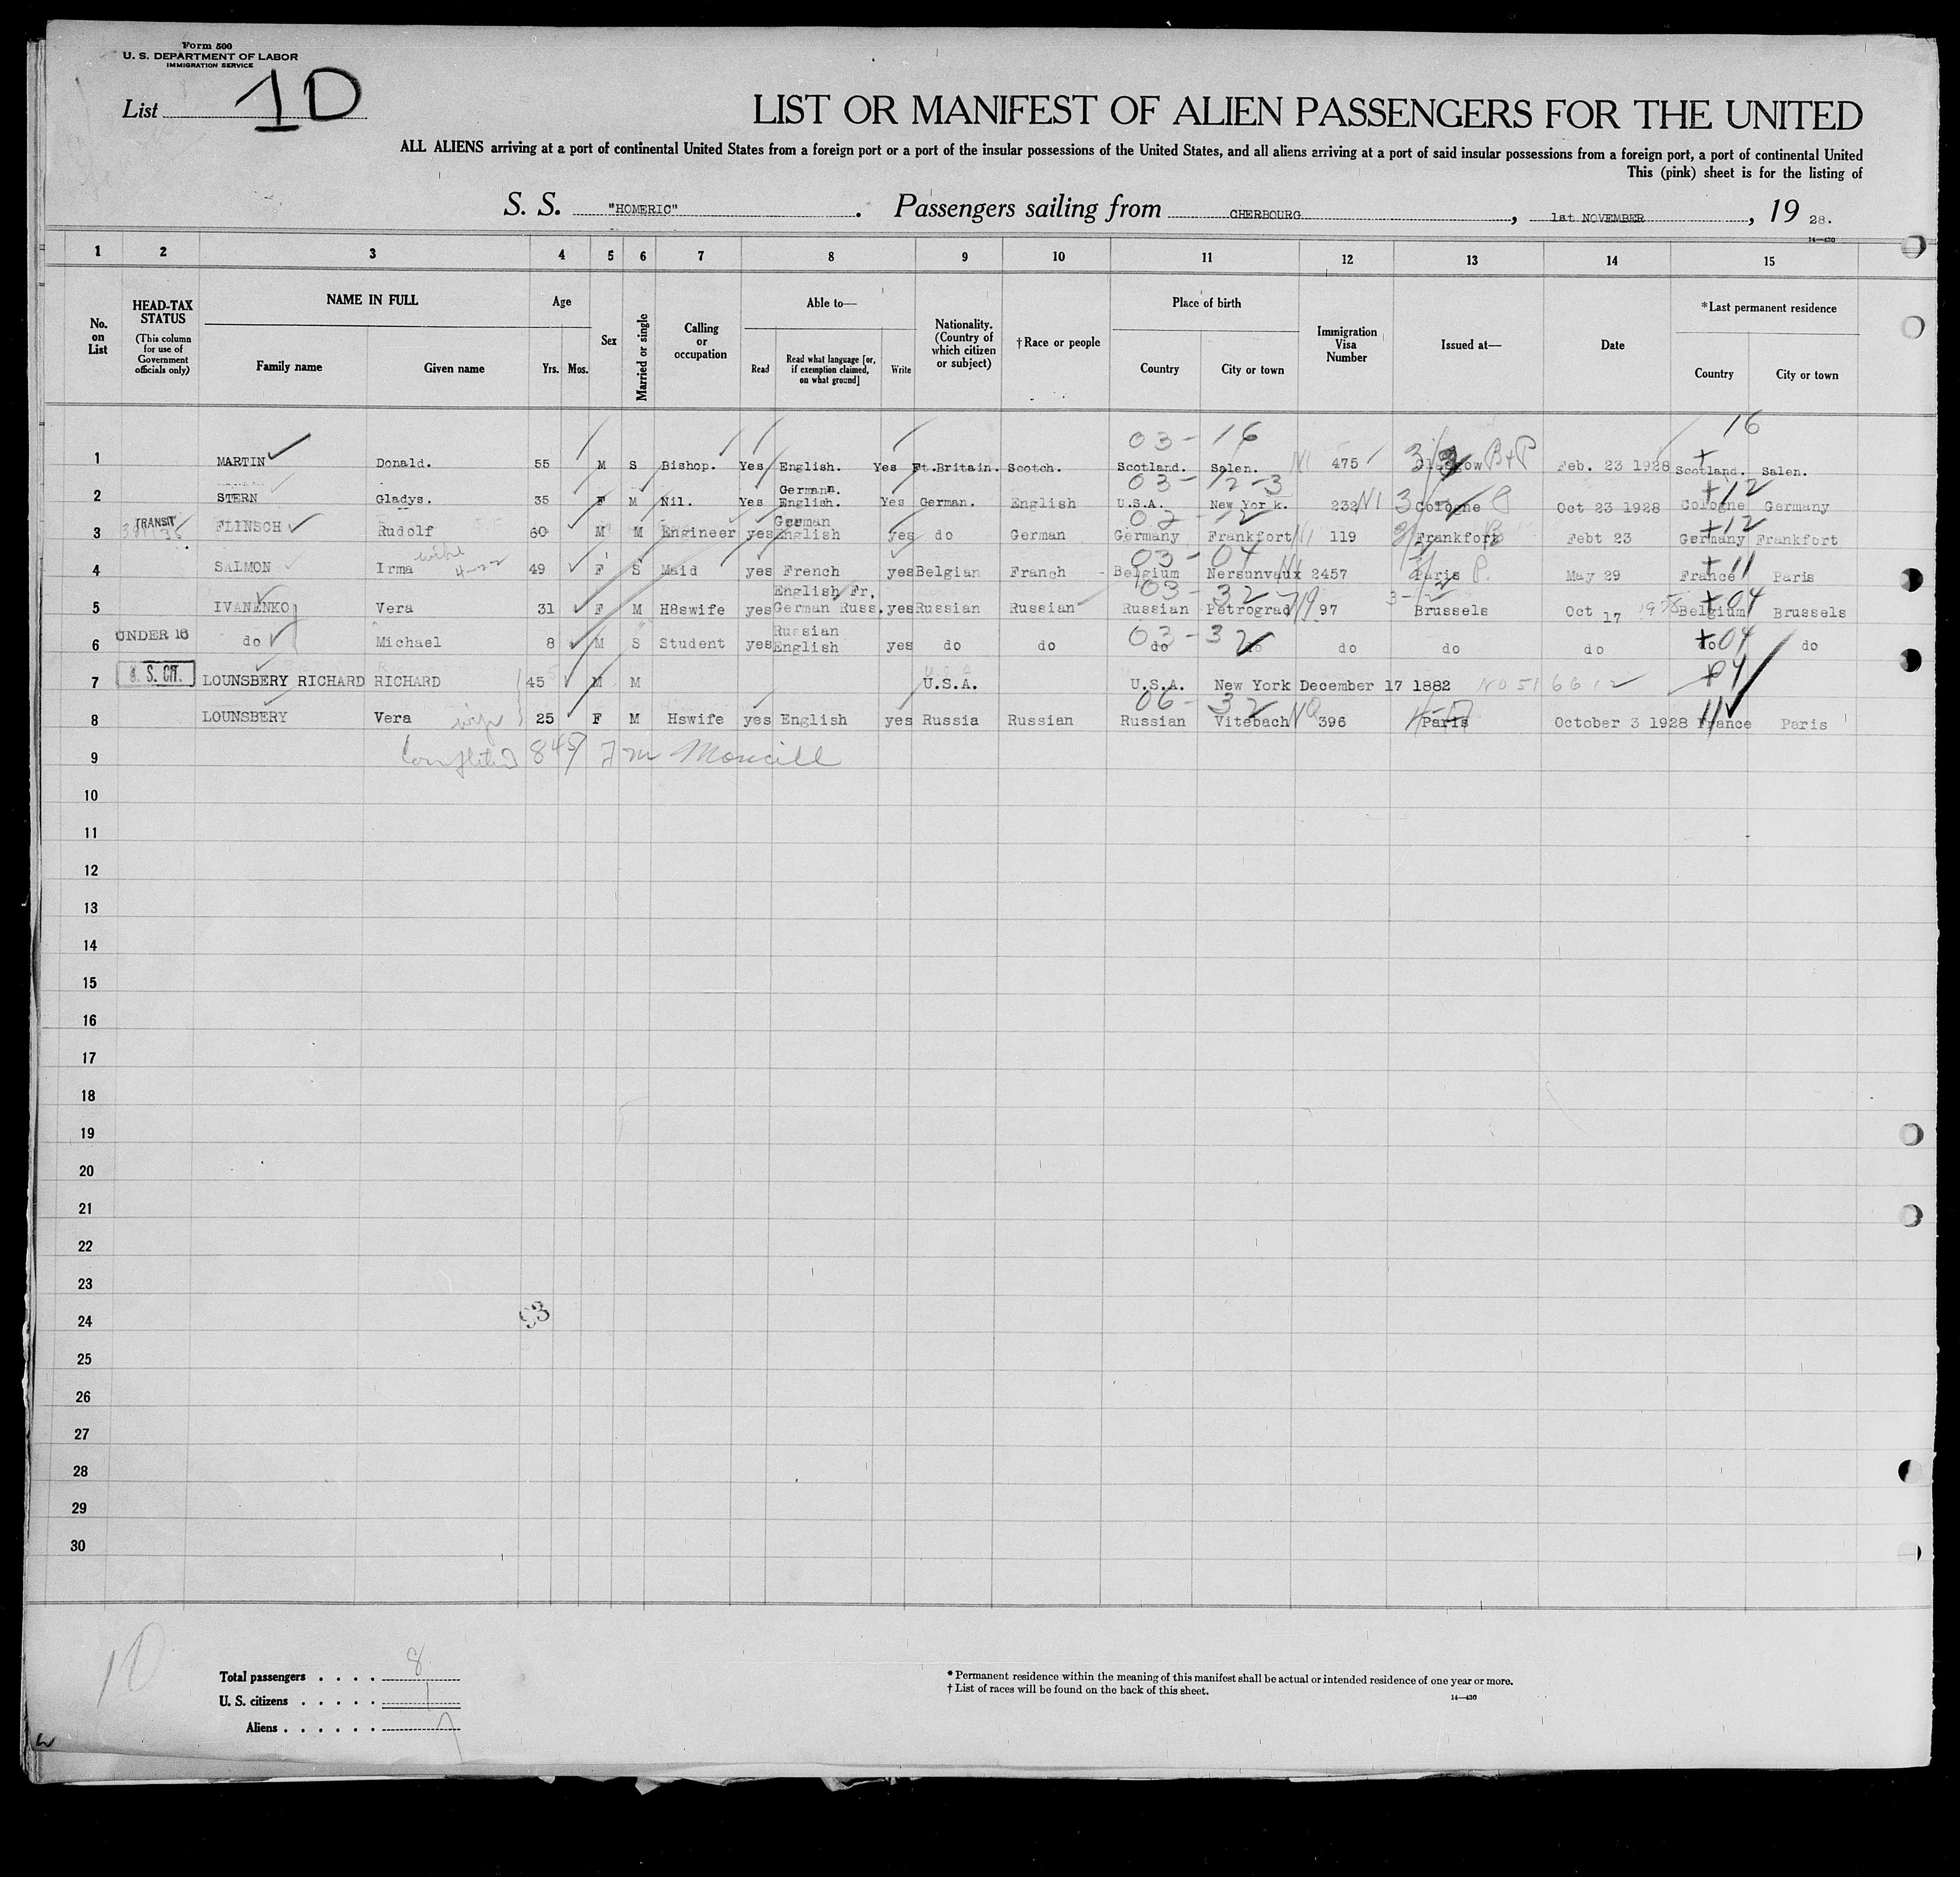 Form 500
U. S. DEPARTMENT OF LABOR
IMMIGRATION SERVICE
List 1D
LIST OR MANIFEST OF ALIEN PASSENGERS FOR THE UNITED
ALL ALIENS arriving at a port of continental United States from a foreign port or a port of the insular possessions of the United States, and all aliens arriving at a port of said insular possessions from a foreign port, a port of continental United
This (pink) sheet is for the listing of
S. S. "HOMERIC". Passengers sailing from CHERBOURG, 1st NOVEMBER, 19 28.
14—430
1 2 3 4 5 6 7 8 9 10 11 12 13 14 15
No. on List
HEAD-TAX STATUS
(This column for use of Government officials only)
NAME IN FULL
Family name Given name
Age
Yrs. Mos.
Sex
Married or single
Calling or occupation
Able to—
Read
Read what language [or, if exemption claimed, on what ground]
Write
Nationality. (Country of which citizen or subject)
†Race or people
Place of birth
Country City or town
Immigration Visa Number
Issued at—
Date
*Last permanent residence
Country City or town
03-16 16
1 MARTIN Donald. 55 M S Bishop. Yes English. Yes Gt.Britain. Scotch. Scotland. Salen. 475 Glasgow Feb. 23 1928 Scotland. Salen.
03-12-3 +12
2 STERN Gladys. 35 F M Nil. Yes Germann. English. Yes German. English U.S.A. New York. 232 Cologne Oct 23 1928 Cologne Germany
02-12 +12
3 TRANSIT FLINSCH Rudolf 60 M M Engineer yes German English yes do German Germany Frankfort 119 Frankfort Febt 23 Germany Frankfort
03-04 +11
4 SALMON Irma 49 F S Maid yes French yes Belgian Franch Belgium Nersunvaux 2457 Paris May 29 France Paris
03-32 +04
5 IVANENKO Vera 31 F M H8swife yes English Fr. German Russ. yes Russian Russian Russian Petrograd 97 Brussels Oct 17 1928 Belgium Brussels
03-32 +04
6 UNDER 16 do Michael 8 M S Student yes Russian English yes do do do do do do do do do
7 U. S. CIT. LOUNSBERY RICHARD RICHARD 45 M M U.S.A. U.S.A. New York December 17 1882 NO 516612
06-32 11
8 LOUNSBERY Vera wife 25 F M Hswife yes English yes Russia Russian Russian Vitebach 396 Paris October 3 1928 France Paris
9
10
11
12
13
14
15
16
17
18
19
20
21
22
23
24
25
26
27
28
29
30
93
10
Total passengers . . . . 8
U. S. citizens . . . . . 1
Aliens . . . . . . 7
* Permanent residence within the meaning of this manifest shall be actual or intended residence of one year or more.
† List of races will be found on the back of this sheet.
14—430